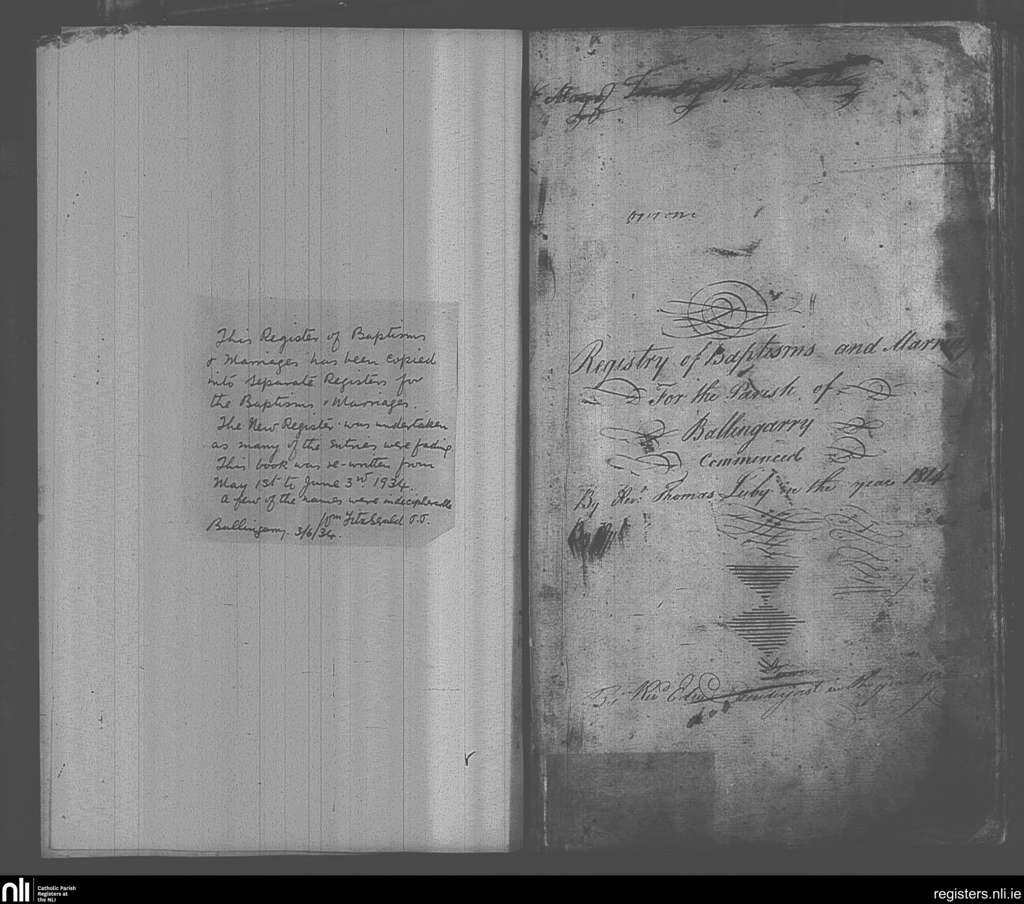 This Register of Baptisms
& Marriages has been copied
into separate Registers for
the Baptisms & Marriages.
The New Register was undertaken
as many of the entries were fading
This book was re-written from
May 1st to June 3rd 1934.
A few of the names were indecipherable
Wm Fitzgerald P.P.
Ballingarry. 3/6/34.
Registry of Baptisms and
For the Parish of
Ballingarry
Commenced
By Revd. Thomas Luby in the year 1814
By Revd
in the year
nli
Catholic Parish
Registers at
the NLI
registers.nli.ie